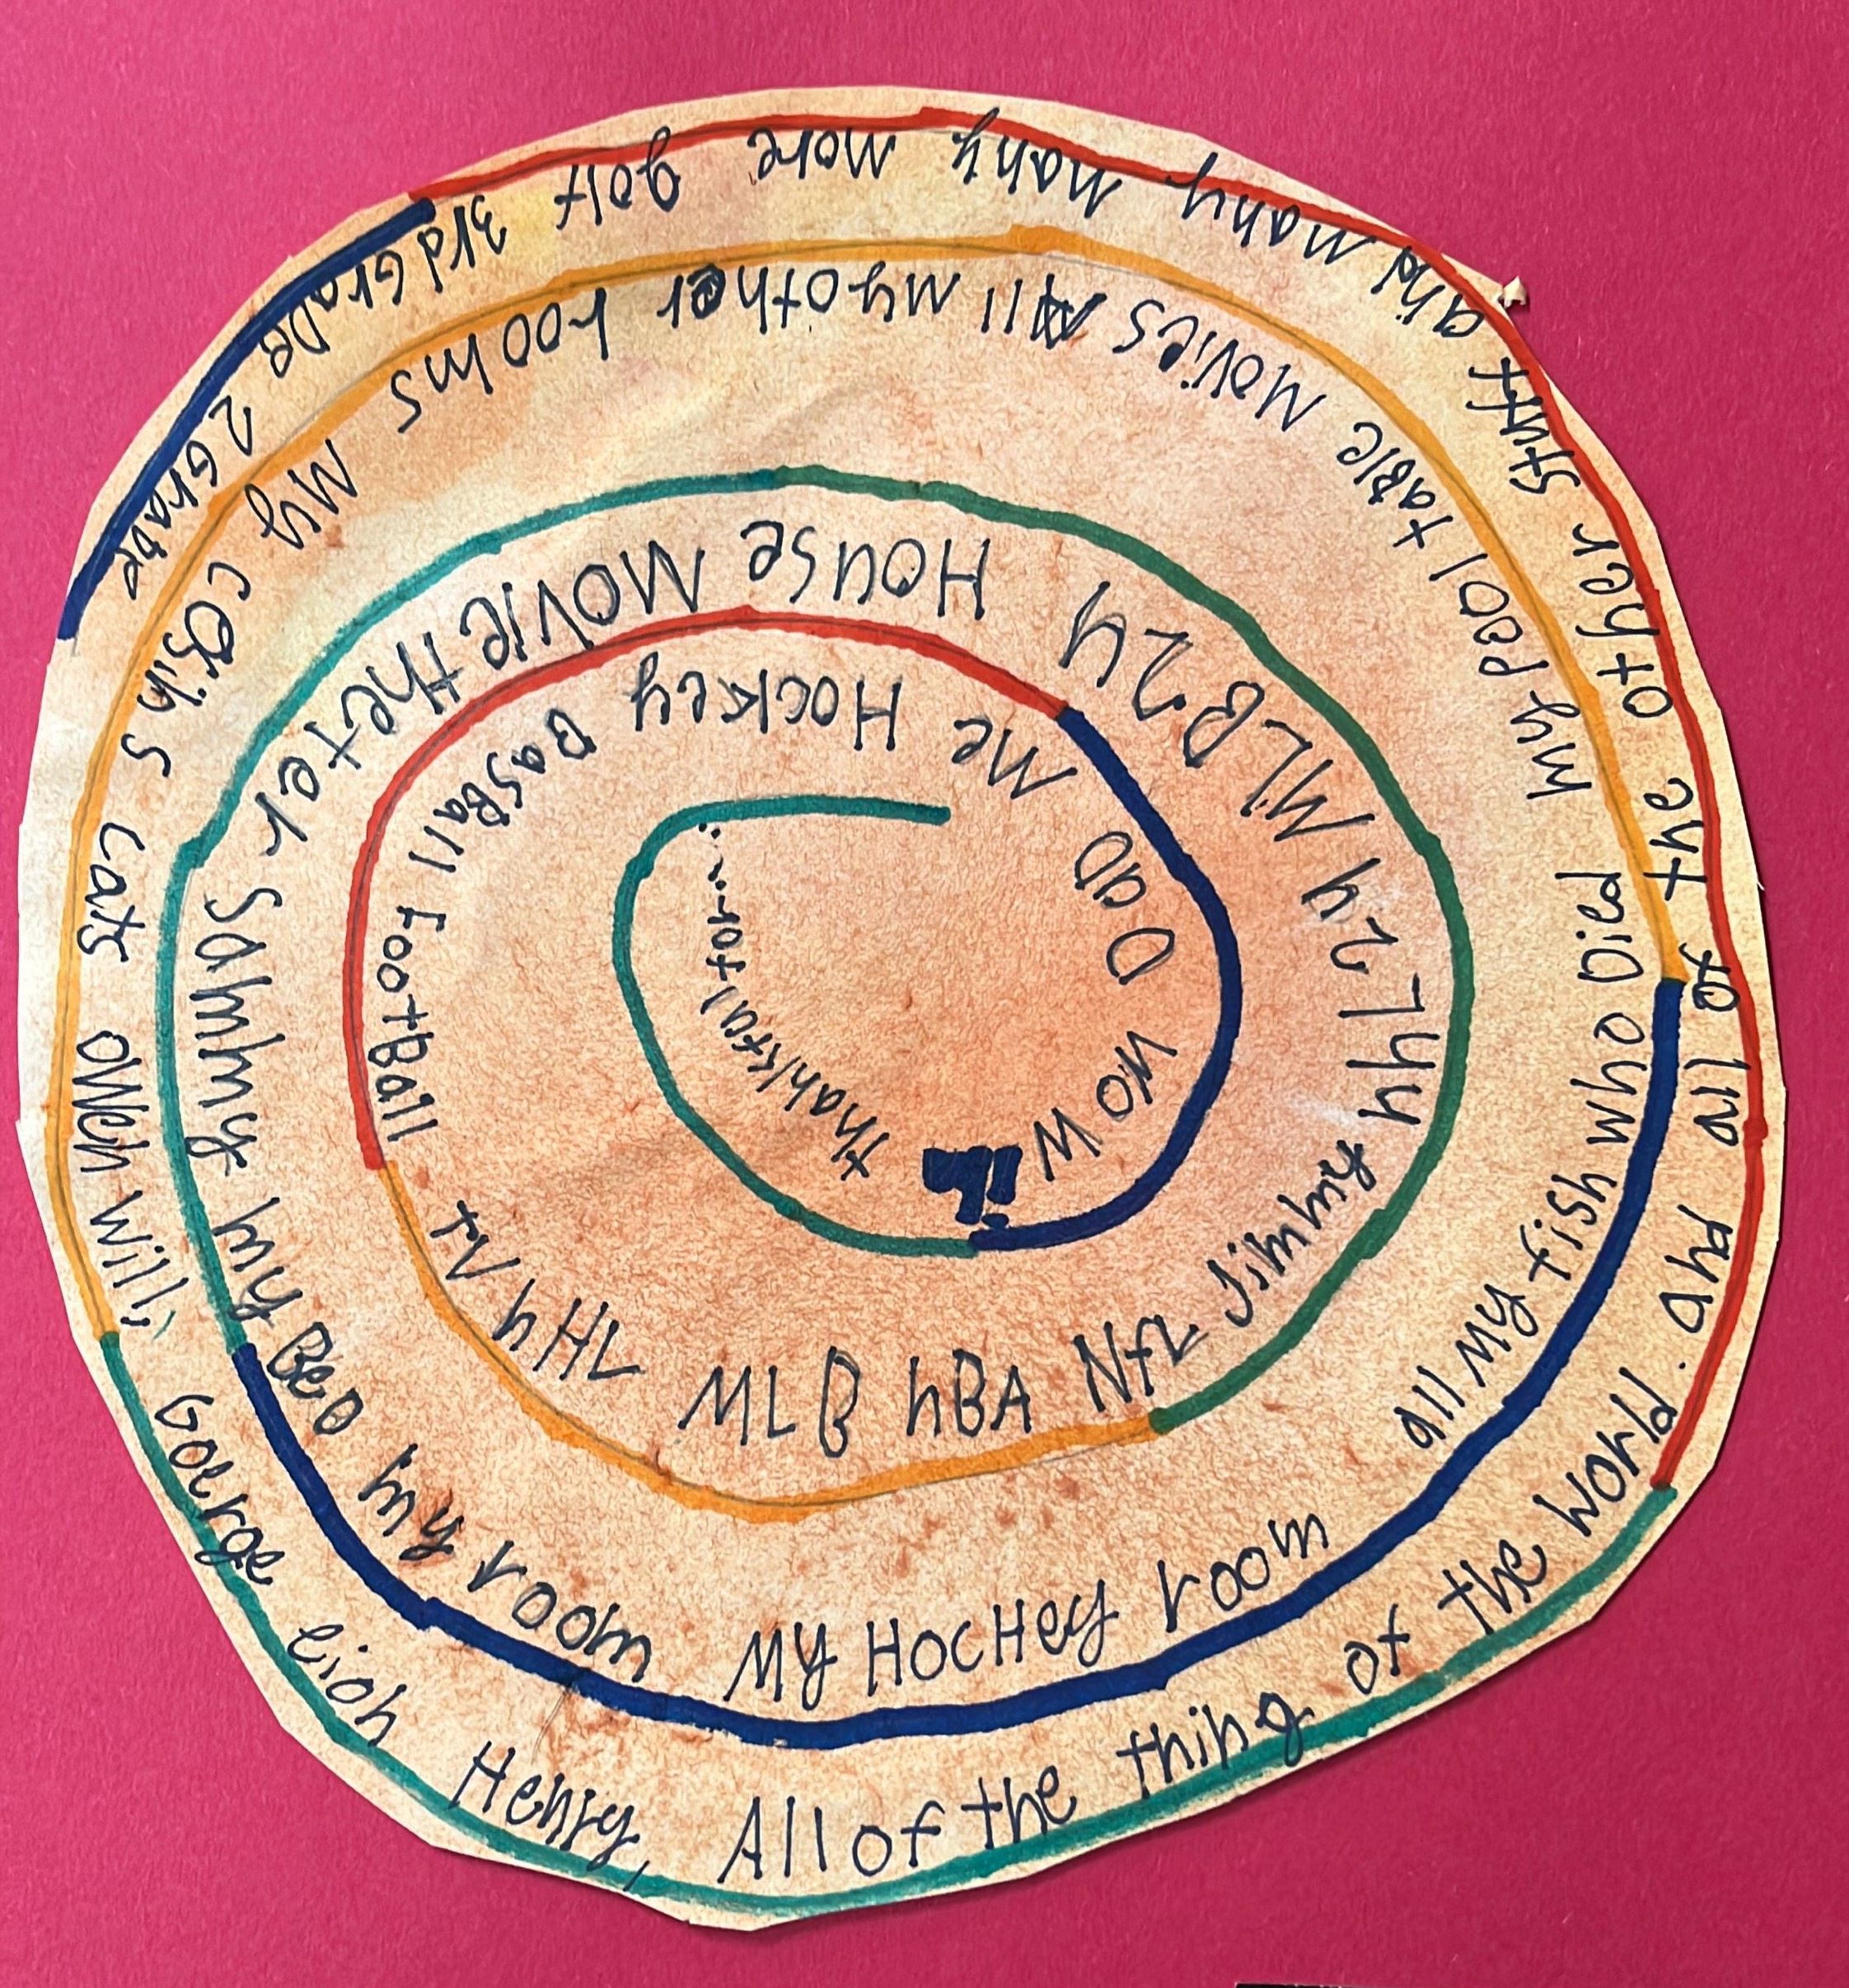 thahkfull for.....
Mom DaD Me Hockey BasBall FootBall hHL MLB hBA NfL Jimmy hHL24 MLB24 House Movie theter Sammy my BeD my room My HocHey room all my fish who Died my pool table Movies All my other rooms My cosins cats owen will, George eioh Henry, All of the thing of the World. and liv of the other stuff and many many more golf 3rd GraDe 2 GraDe